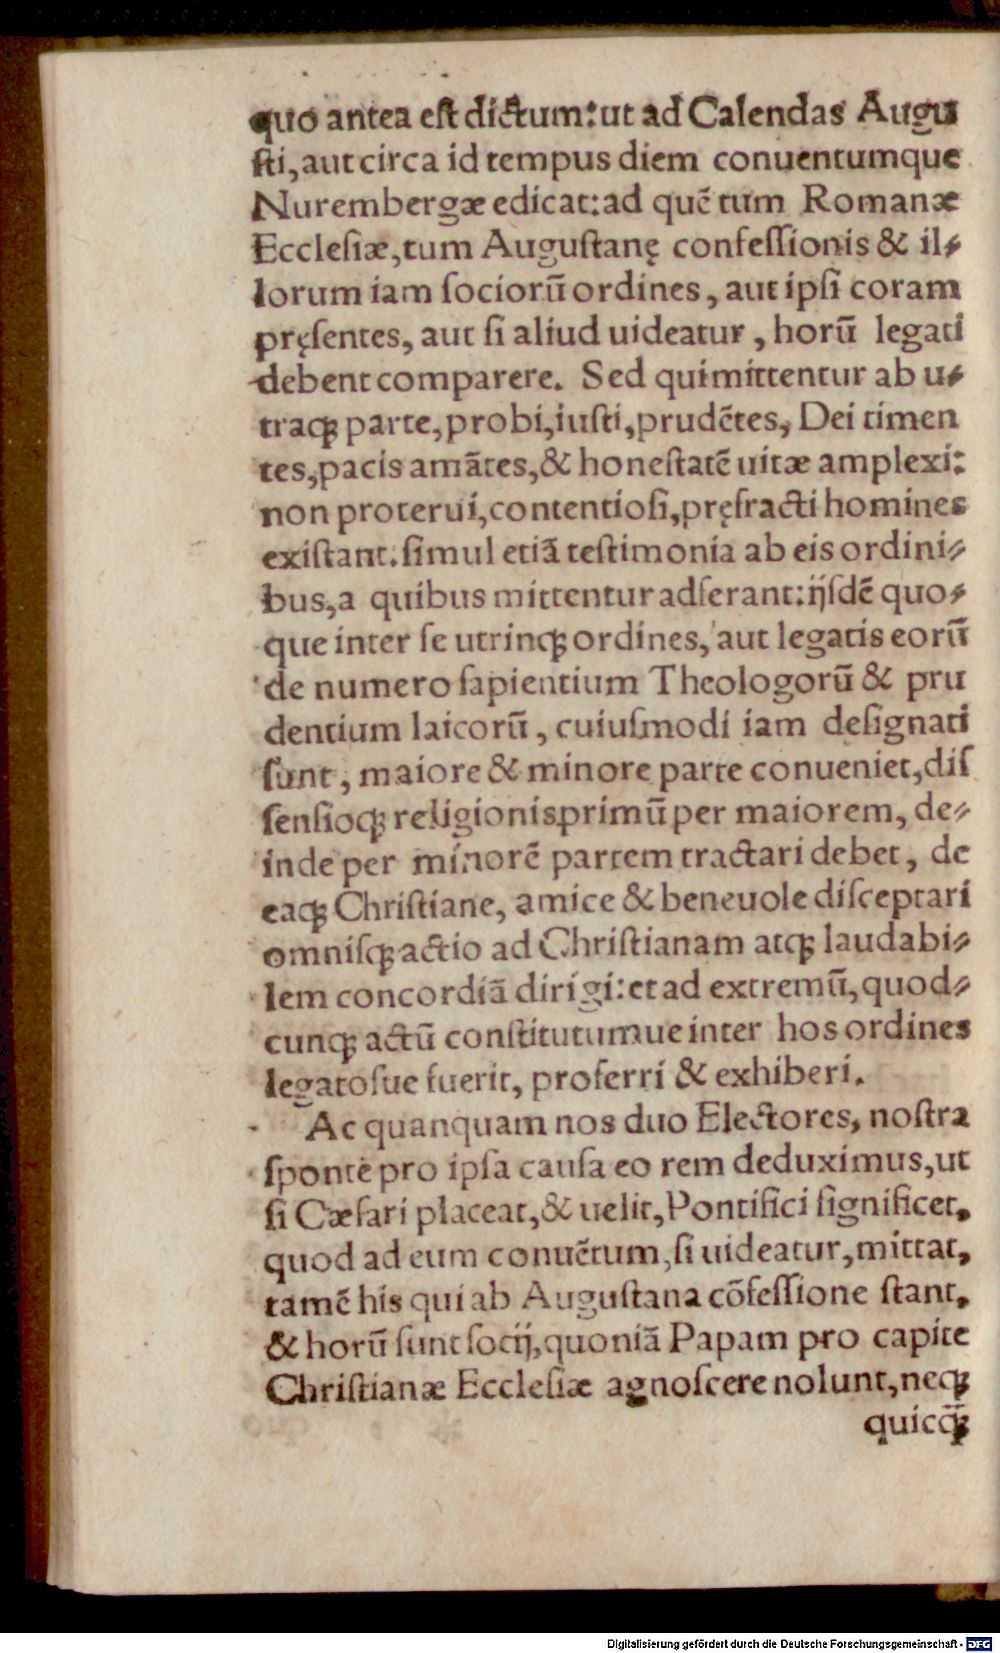 quo antea eſt dictum: ut ad Calendas Augu
ſti, aut circa id tempus diem conuentumque
Nurembergæ edicat: ad quē tum Romanæ
Eccleſiæ, tum Auguſtanę confeſſionis & il⸗
lorum iam ſociorū ordines, aut ipſi coram
pręſentes, aut ſi aliud uideatur, horū legati
debent comparere. Sed qui mittentur ab u⸗
traqꝫ parte, probi, iuſti, prudētes, Dei timen
tes, pacis amātes, & honeſtatē uitæ amplexi:
non proterui, contentioſi, pręfracti homines
exiſtant. ſimul etiā teſtimonia ab eis ordini⸗
bus, a quibus mittentur adferant: ijſdē quo⸗
que inter ſe utrinqꝫ ordines, aut legatis eorū
de numero ſapientium Theologorū & pru
dentium laicorū, cuiuſmodi iam deſignati
ſunt, maiore & minore parte conueniet, diſ
ſenſioqꝫ religionis primū per maiorem, de⸗
inde per minorē partem tractari debet, de
eaqꝫ Chriſtiane, amice & beneuole diſceptari
omniſqꝫ actio ad Chriſtianam atqꝫ laudabi⸗
lem concordiā dirigi: et ad extremū, quod⸗
cunqꝫ actū conſtitutumue inter hos ordines
legatoſue fuerit, proferri & exhiberi.
Ac quanquam nos duo Electores, noſtra
ſponte pro ipſa cauſa eo rem deduximus, ut
ſi Cæſari placeat, & uelit, Pontifici ſignificet,
quod ad eum conuētum, ſi uideatur, mittat,
tamē his qui ab Auguſtana cōfeſſione ſtant,
& horū ſunt ſocij, quoniā Papam pro capite
Chriſtianæ Eccleſiæ agnoſcere nolunt, neqꝫ
quicq̄ꝫ
Digitalisierung gefördert durch die Deutsche Forschungsgemeinschaft - DFG